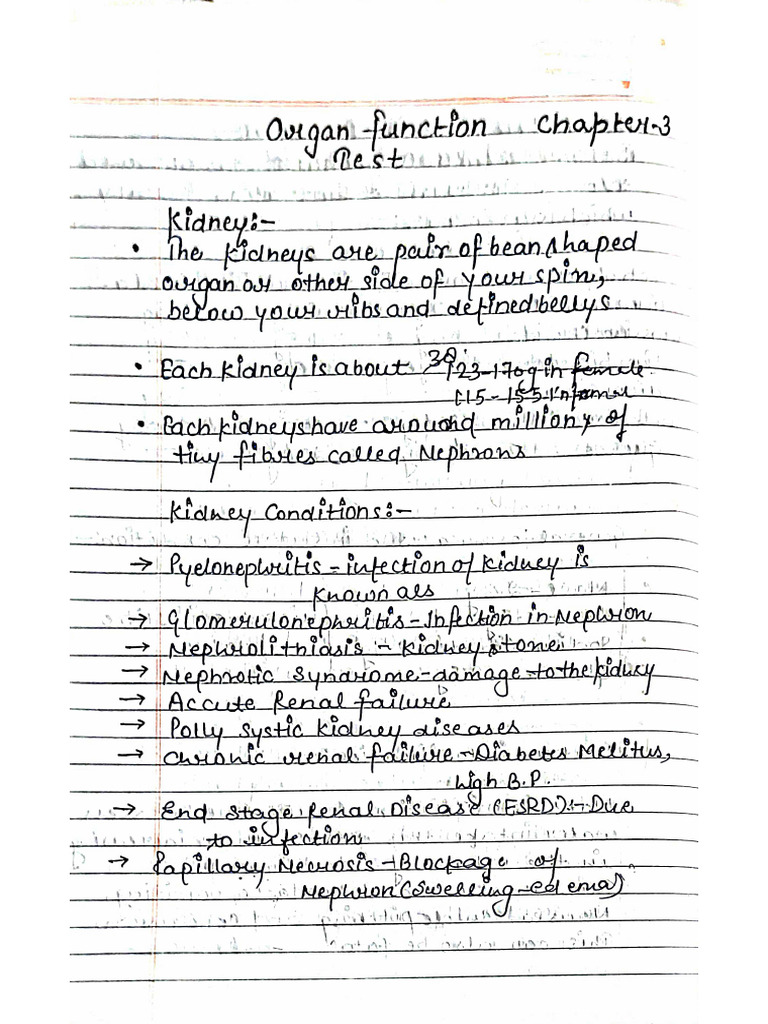 Organ function Chapter-3
Test
Kidney:-
• The kidneys are pair of bean shaped
organ or other side of your spin,
below your ribs and defined bellys
• Each kidney is about 123-170g in female
115-155 in
• Each kidneys have around millions of
tiny fibres called Nephrons
Kidney Conditions:-
→ Pyelonephritis - infection of kidney is
known als
→ Glomerulonephritis - Infection in Nephron
→ Nephrolithiasis - kidney stone
→ Nephrotic Syndrome - damage to the kidney
→ Accute Renal failure
→ Polly systic kidney diseases
→ Chronic renal failure - Diabetes Melitus,
high B.P.
→ End stage Renal Disease (ESRD):- Due
to infection
→ Papillary Necrosis - Blockage of
Nephron (Swelling - edema)